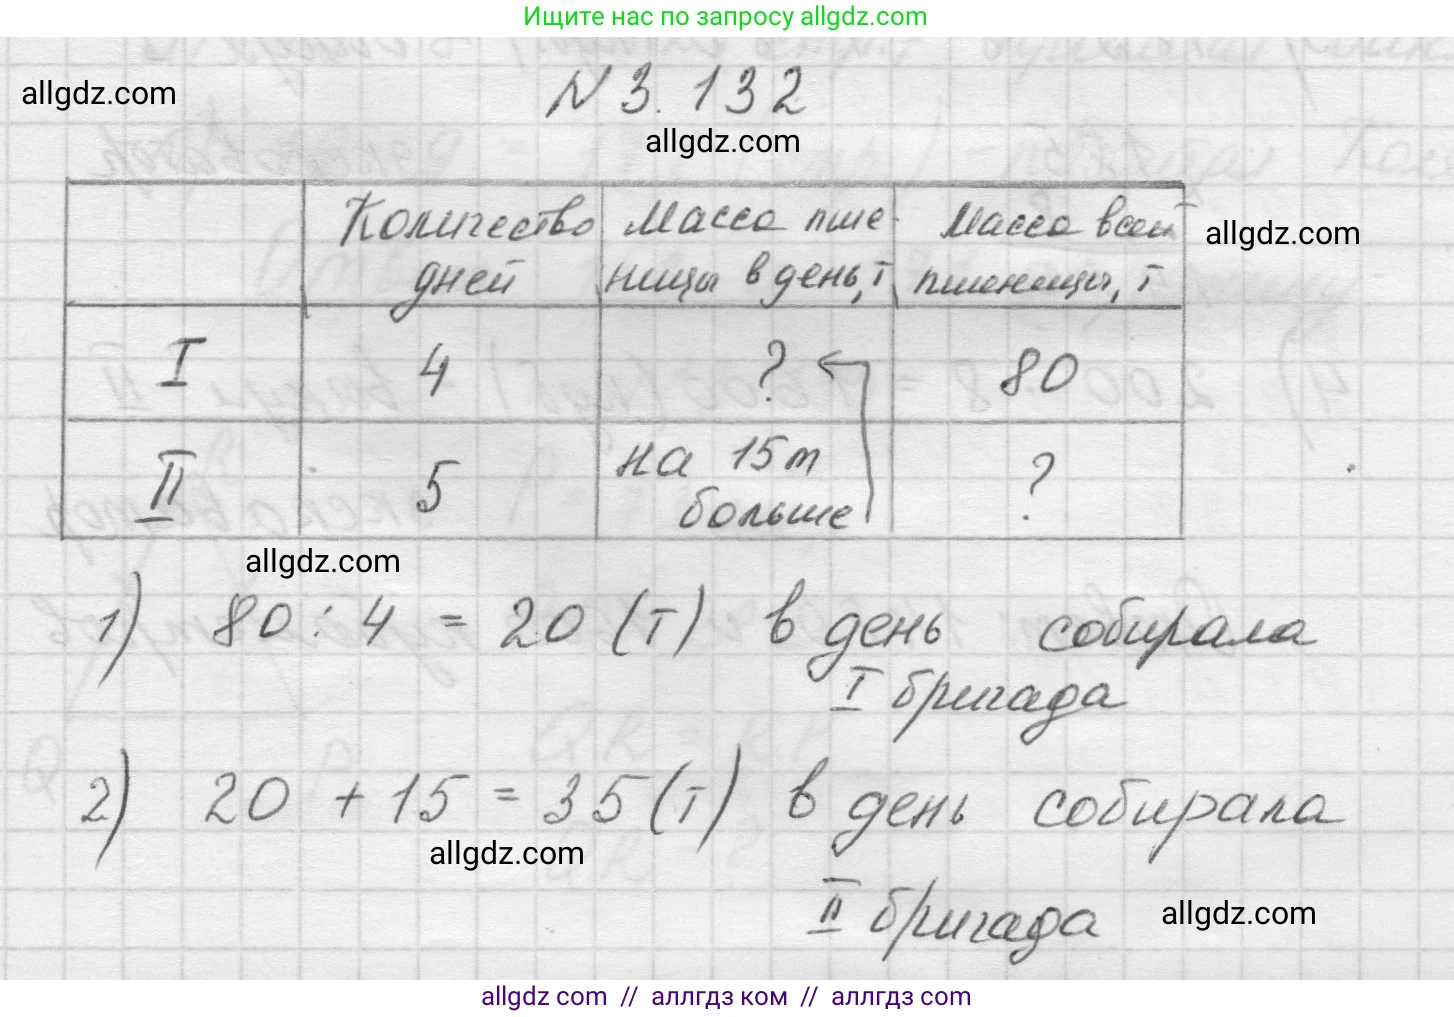 Ищите нас по запросу allgdz.com
allgdz.com
N 3.132
allgdz.com
Количество дней
Масса пшеницы в день, т
Масса всей пшеницы, т
allgdz.com
I 4 ? 80
II 5 на 15 т больше ?
allgdz.com
1) 80 : 4 = 20 (т) в день собирала
I бригада
2) 20 + 15 = 35 (т) в день собирала
allgdz.com
II бригада
allgdz.com
allgdz com // аллгдз ком // аллгдз com